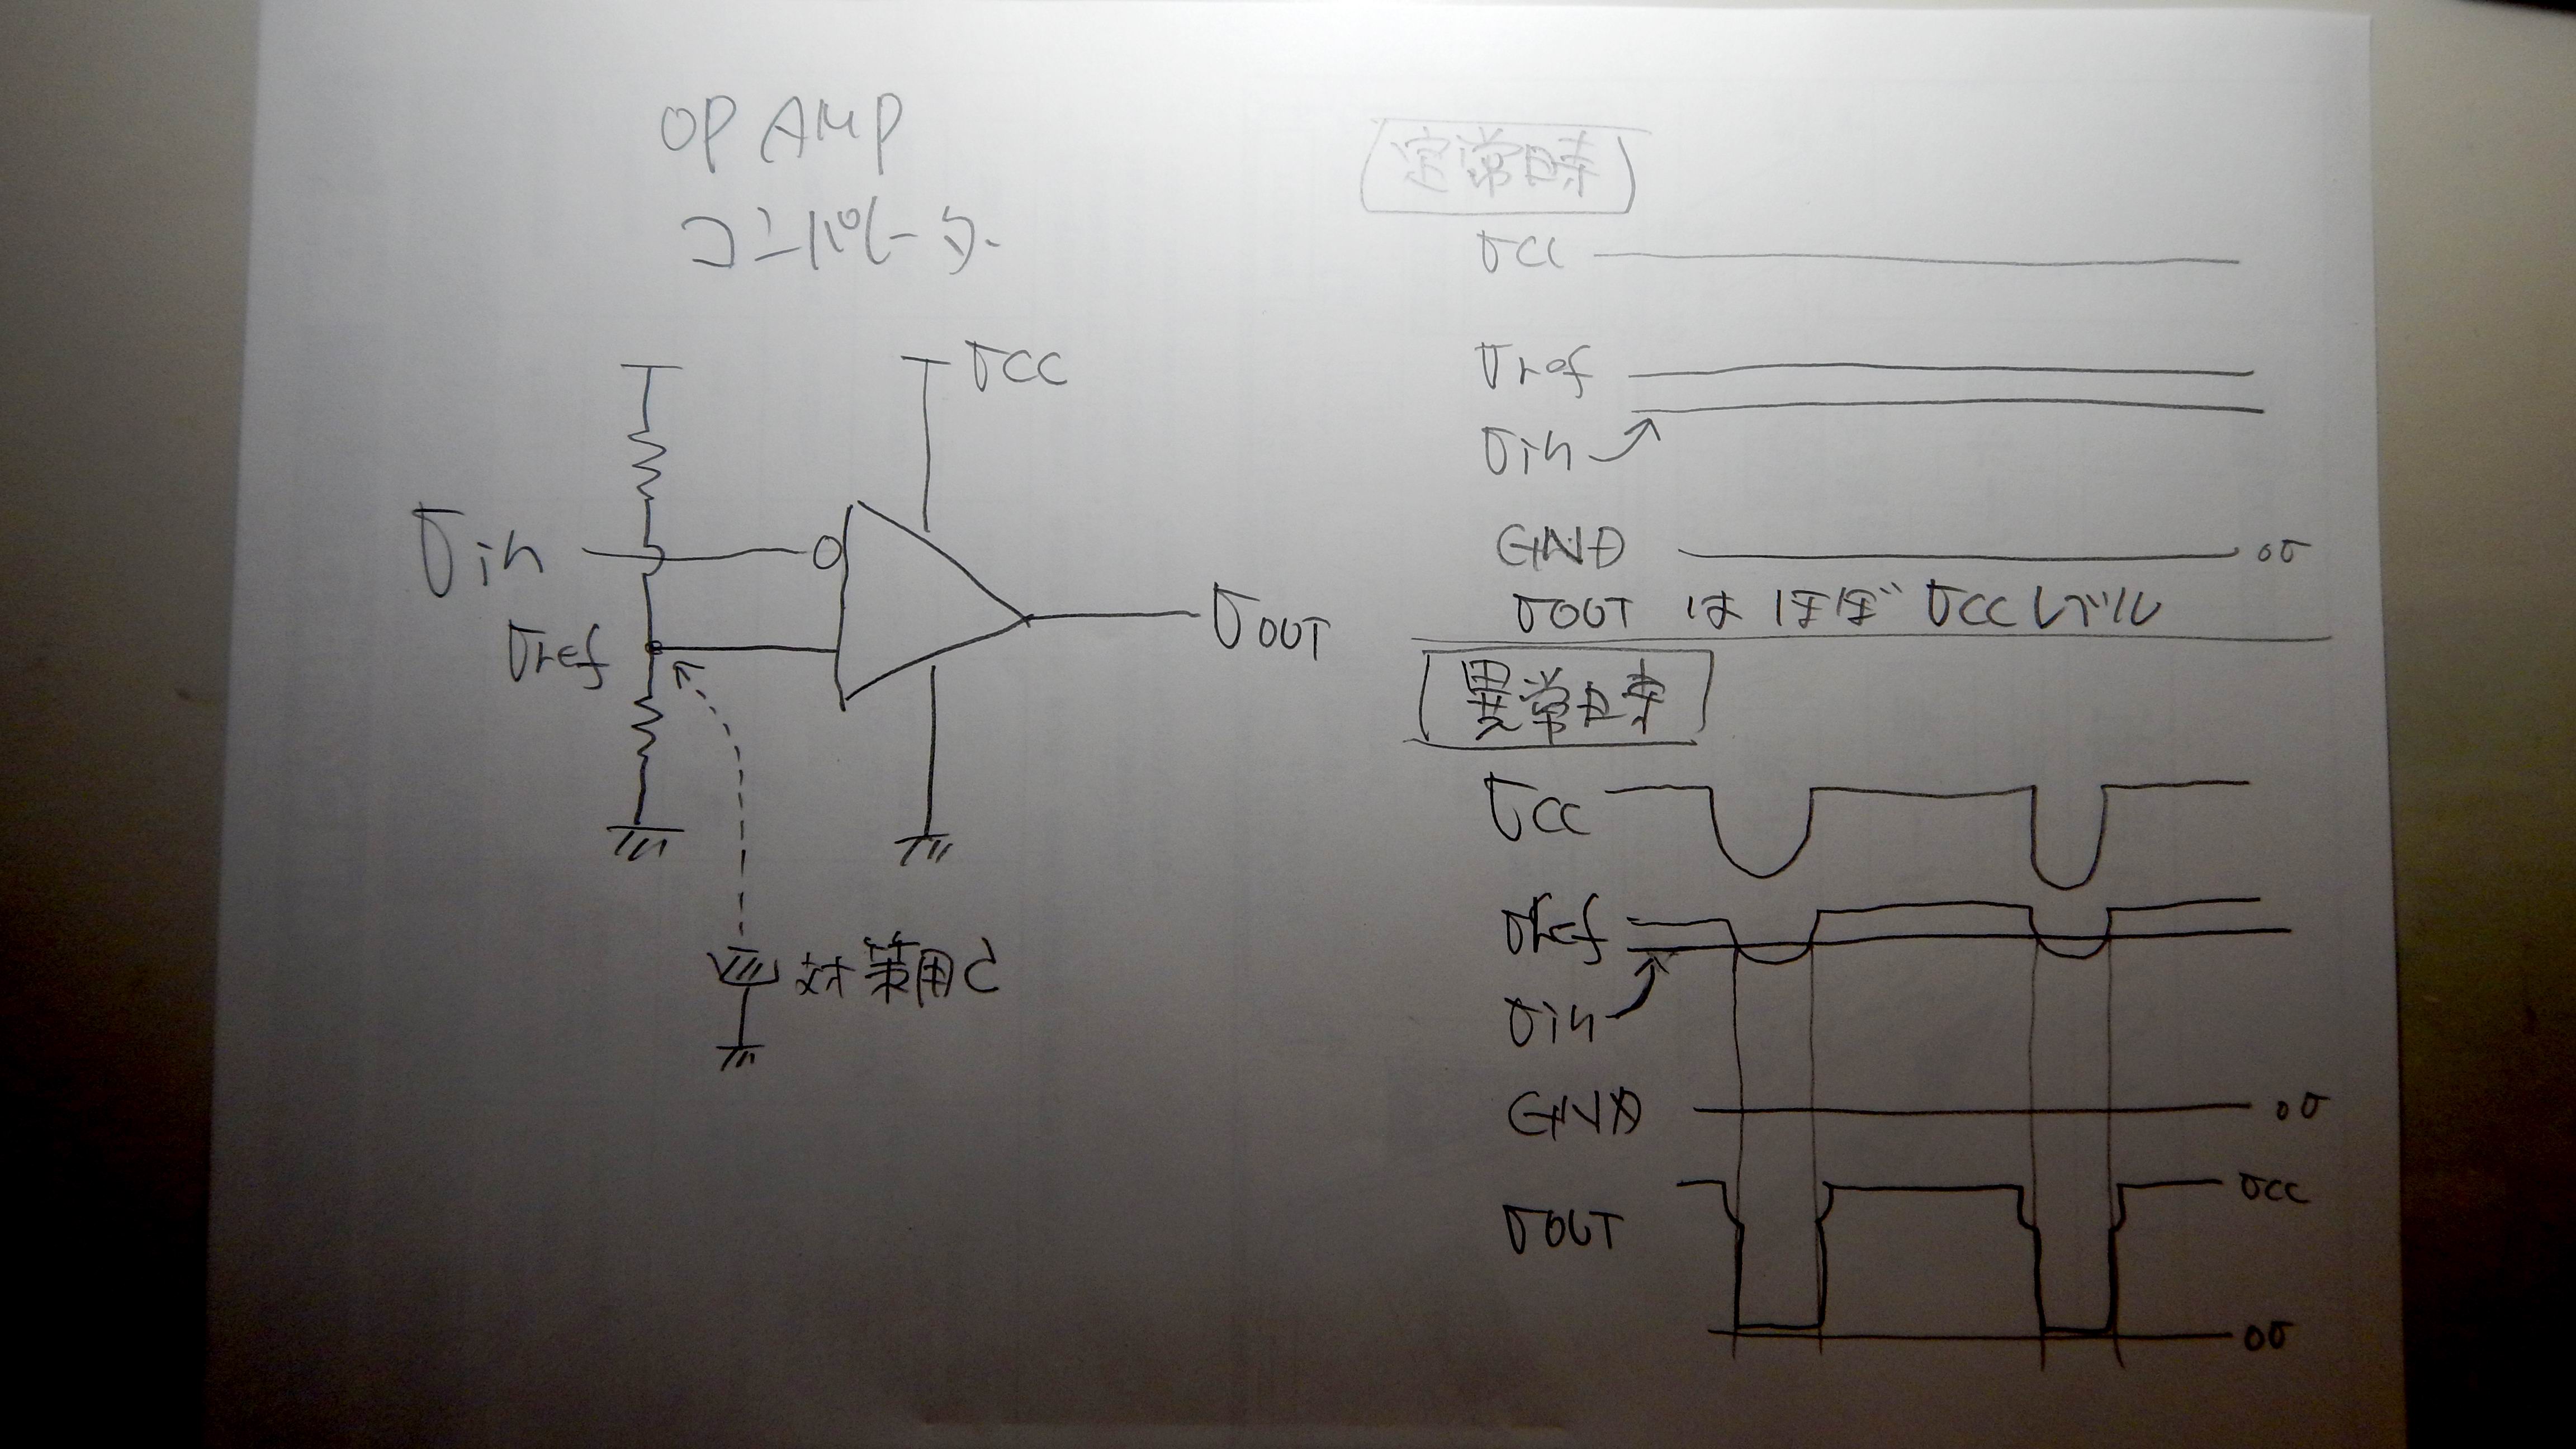 OP AMP
コンパレータ
VCC
Vin
Vref
VOUT
対策用C
定常時
VCC
Vref
Vin
GND 0V
VOUT は ほぼ VCCレベル
異常時
VCC
Vref
Vin
GND 0V
VCC
VOUT
0V